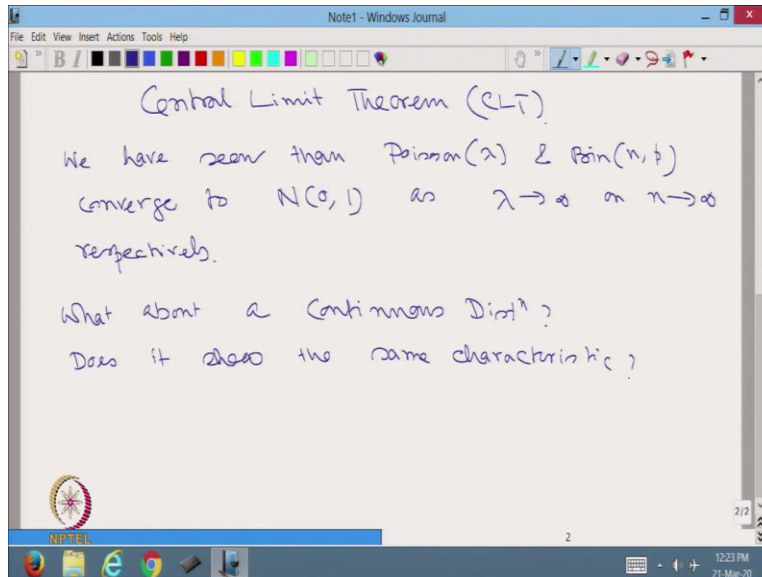 Note1 - Windows Journal
File Edit View Insert Actions Tools Help
Central Limit Theorem (CLT)
We have seen than Poisson(λ) & Bin(n, p)
converge to N(0, 1) as λ→∞ or n→∞
respectively.
What about a Continuous Distⁿ?
Does it show the same characteristic?
2/2
NPTEL
2
12:23 PM
21-Mar-20